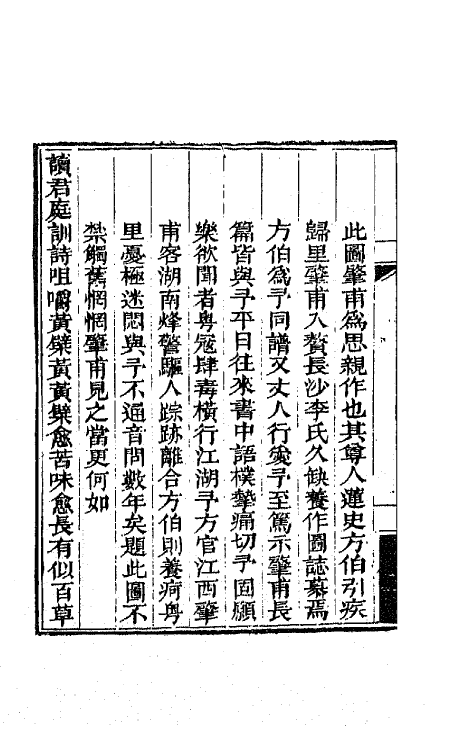 此圖肇甫爲思親作也其尊人蓮史方伯引疾
歸里肇甫入贅長沙李氏久缺養作圖誌慕焉
方伯爲予同譜又丈人行愛予至篤示肇甫長
篇皆與予平日往來書中語樸摯痛切予固願
樂欲聞者粤寇肆毒橫行江湖予方官江西肇
甫客湖南烽警驅人踪跡離合方伯則養疴粤
里憂極迷悶與予不通音問數年矣題此圖不
禁觸舊惘惘肇甫見之當更何如
讀君庭訓詩咀嚼黃檗黃黃檗愈苦味愈長有似百草